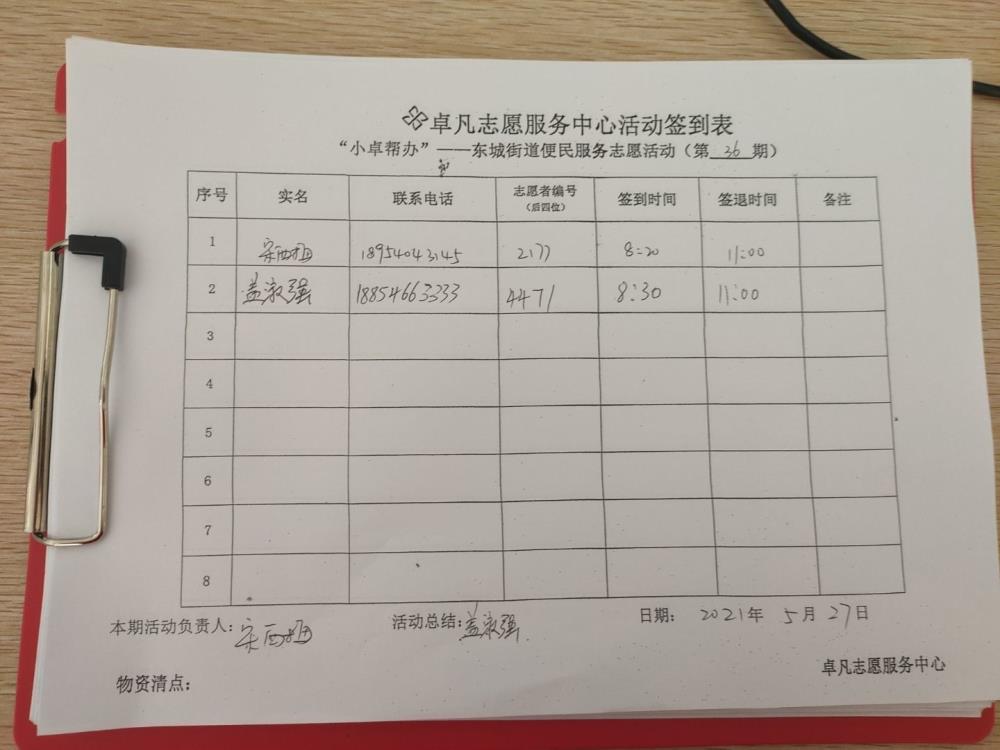 卓凡志愿服务中心活动签到表
“小卓帮办”——东城街道便民服务志愿活动（第 36 期）
序号 实名 联系电话 志愿者编号（后四位） 签到时间 签退时间 备注
1 宋西 18954043145 2177 8:20 11:00
2 盖淑强 18854663333 4471 8:30 11:00
3
4
5
6
7
8
本期活动负责人：宋西 活动总结：盖淑强 日期： 2021年 5月 27日
物资清点： 卓凡志愿服务中心